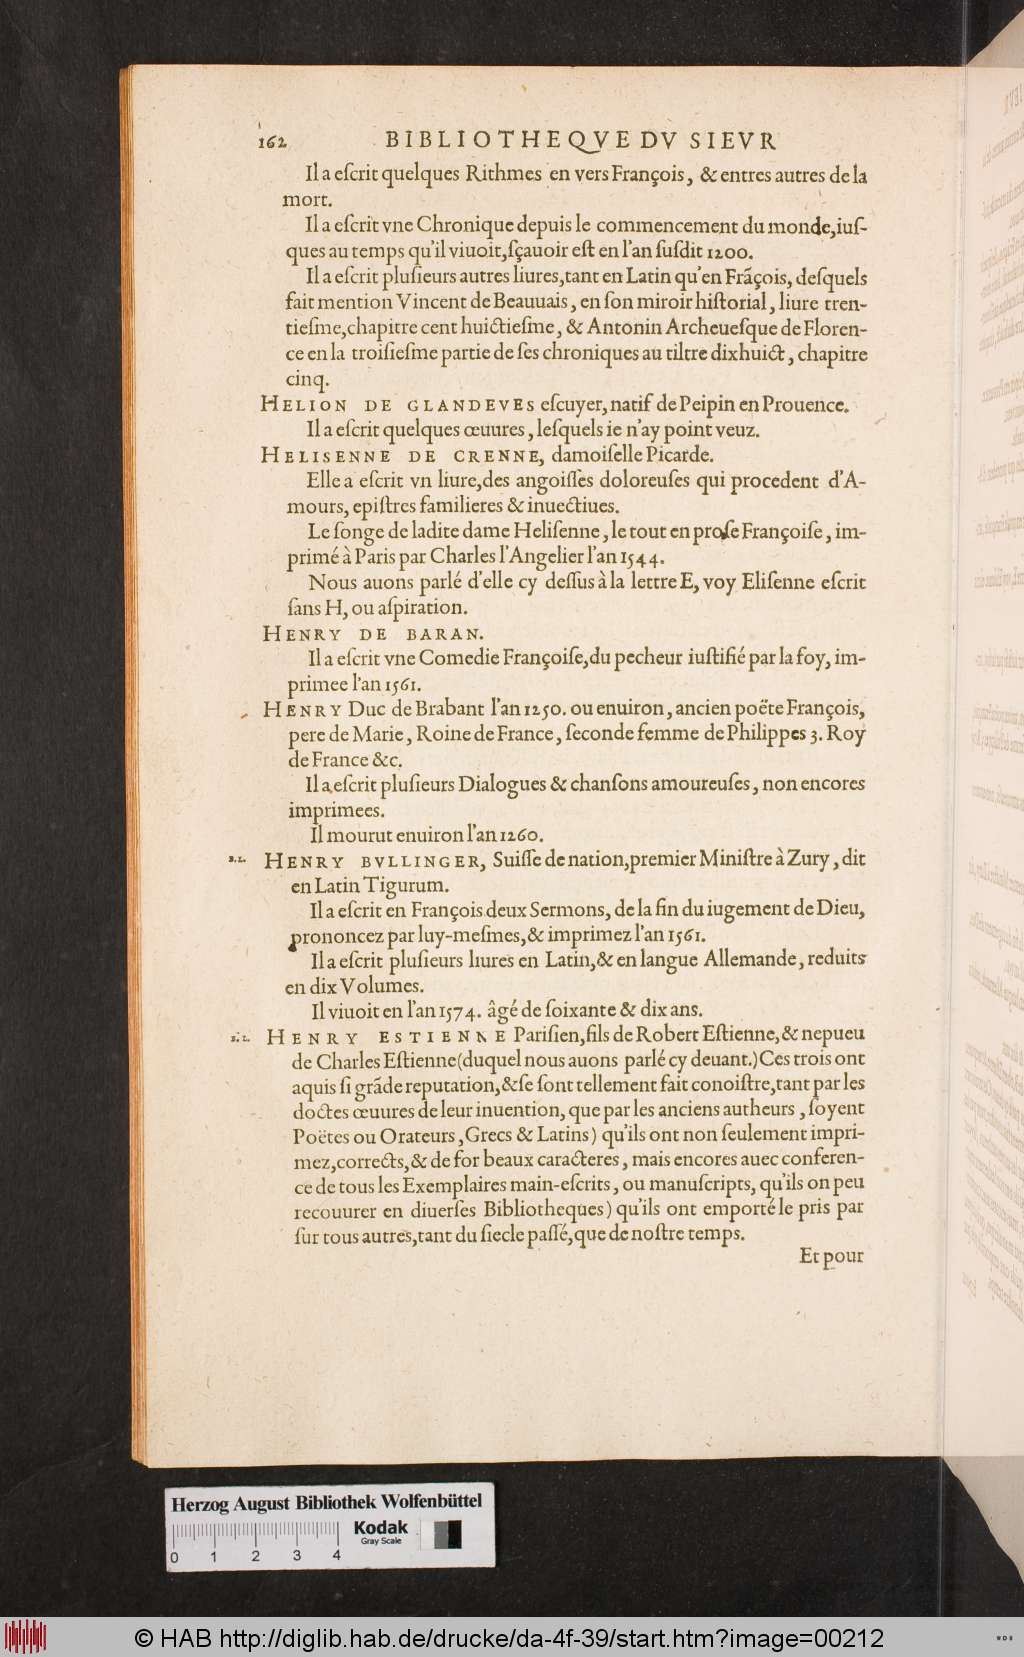 162 BIBLIOTHEQVE DV SIEVR
Il a eſcrit quelques Rithmes en vers François, & entres autres de la
mort.
Il a eſcrit vne Chronique depuis le commencement du monde, iuſ-
ques au temps qu'il viuoit, ſçauoir eſt en l'an ſuſdit 1200.
Il a eſcrit pluſieurs autres liures, tant en Latin qu'en Frãçois, deſquels
fait mention Vincent de Beauuais, en ſon miroir hiſtorial, liure tren-
tieſme, chapitre cent huictieſme, & Antonin Archeueſque de Floren-
ce en la troiſieſme partie de ſes chroniques au tiltre dixhuict, chapitre
cinq.
HELION DE GLANDEVES eſcuyer, natif de Peipin en Prouence.
Il a eſcrit quelques œuures, leſquels ie n'ay point veuz.
HELISENNE DE CRENNE, damoiſelle Picarde.
Elle a eſcrit vn liure, des angoiſſes doloreuſes qui procedent d'A-
mours, epiſtres familieres & inuectiues.
Le ſonge de ladite dame Heliſenne, le tout en proſe Françoiſe, im-
primé à Paris par Charles l'Angelier l'an 1544.
Nous auons parlé d'elle cy deſſus à la lettre E, voy Eliſenne eſcrit
ſans H, ou aſpiration.
HENRY DE BARAN.
Il a eſcrit vne Comedie Françoiſe, du pecheur iuſtifié par la foy, im-
primee l'an 1561.
HENRY Duc de Brabant l'an 1250. ou enuiron, ancien poëte François,
pere de Marie, Roine de France, ſeconde femme de Philippes 3. Roy
de France &c.
Il a eſcrit pluſieurs Dialogues & chanſons amoureuſes, non encores
imprimees.
Il mourut enuiron l'an 1260.
HENRY BVLLINGER, Suiſſe de nation, premier Miniſtre à Zury, dit
en Latin Tigurum.
Il a eſcrit en François deux Sermons, de la fin du iugement de Dieu,
prononcez par luy-meſmes, & imprimez l'an 1561.
Il a eſcrit pluſieurs liures en Latin, & en langue Allemande, reduits
en dix Volumes.
Il viuoit en l'an 1574. âgé de ſoixante & dix ans.
HENRY ESTIENNE Pariſien, fils de Robert Eſtienne, & nepueu
de Charles Eſtienne (duquel nous auons parlé cy deuant.) Ces trois ont
aquis ſi grãde reputation, & ſe ſont tellement fait conoiſtre, tant par les
doctes œuures de leur inuention, que par les anciens autheurs, ſoyent
Poëtes ou Orateurs, Grecs & Latins) qu'ils ont non ſeulement impri-
mez, corrects, & de for beaux caracteres, mais encores auec conferen-
ce de tous les Exemplaires main-eſcrits, ou manuſcripts, qu'ils on peu
recouurer en diuerſes Bibliotheques) qu'ils ont emporté le pris par
ſur tous autres, tant du ſiecle paſſé, que de noſtre temps.
Et pour
Herzog August Bibliothek Wolfenbüttel
Kodak
Gray Scale
0 1 2 3 4
© HAB http://diglib.hab.de/drucke/da-4f-39/start.htm?image=00212